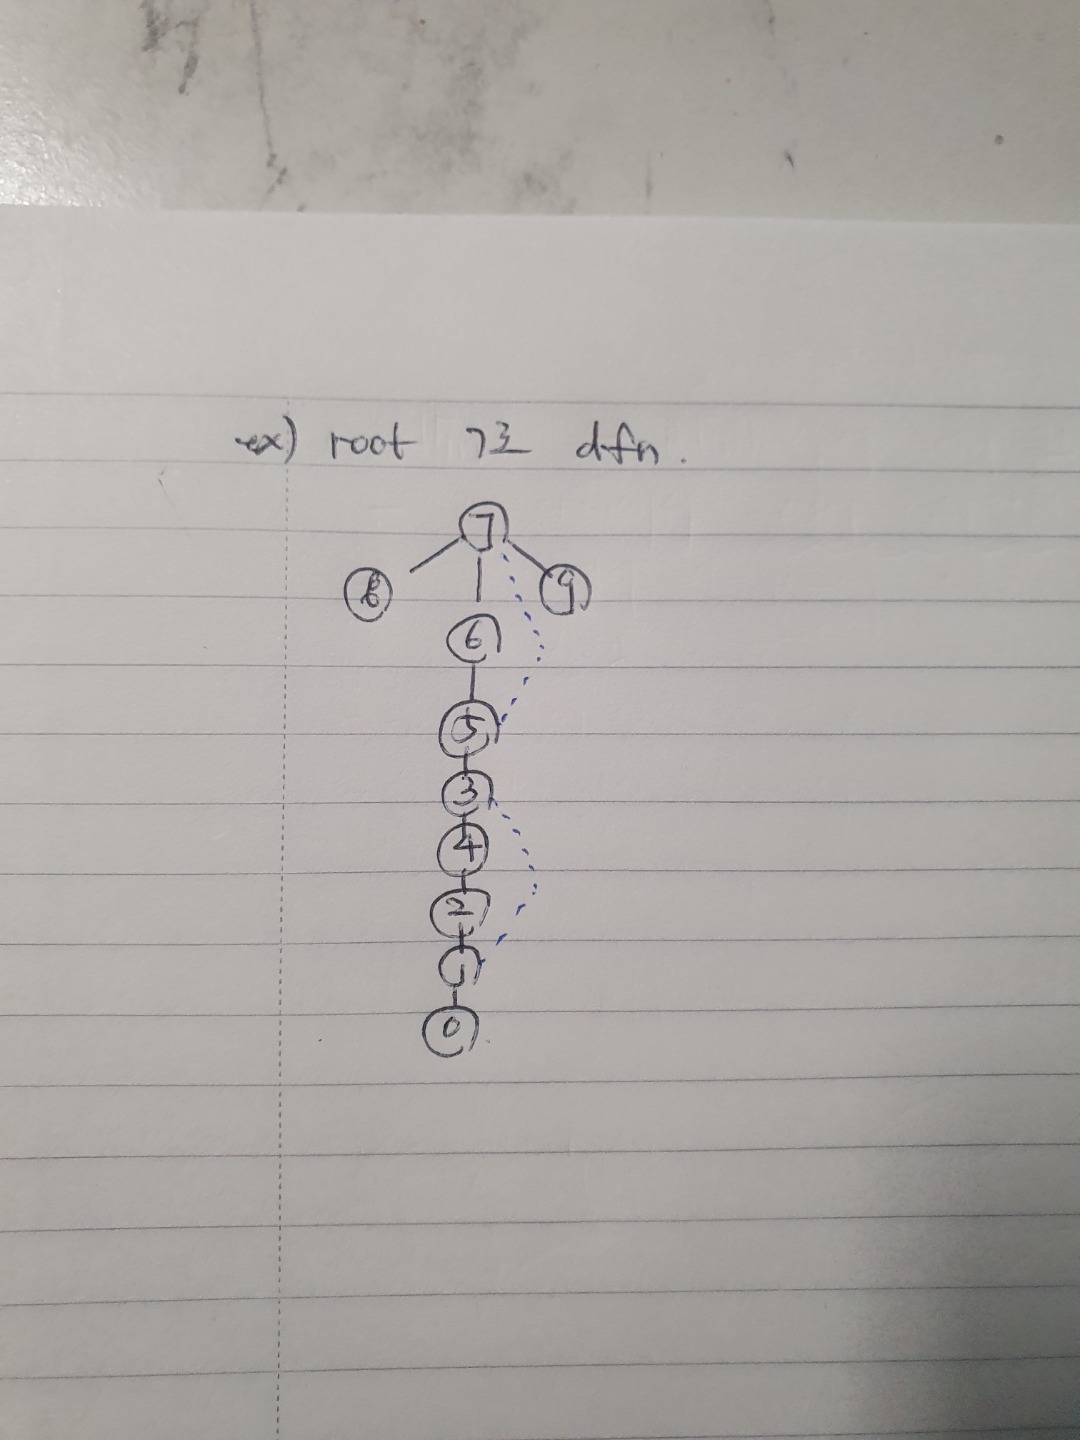 ex) root 7로 dfn.
7
8 9
6
5
3
4
2
1
0